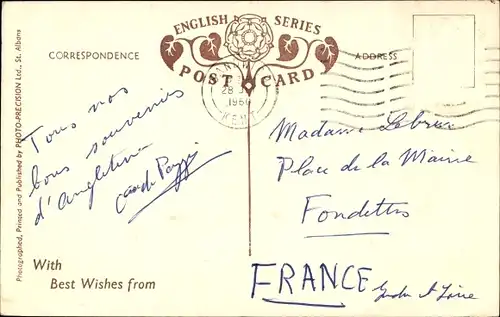 ENGLISH SERIES
POST CARD
CORRESPONDENCE
ADDRESS
28
1960
KENT
Tous nos
bons souvenirs
d'Angleterre
Madame Lebrun
Place de la Mairie
Fondettes
FRANCE Indre et Loire
With
Best Wishes from
Photographed, Printed and Published by PHOTO-PRECISION Ltd., St. Albans